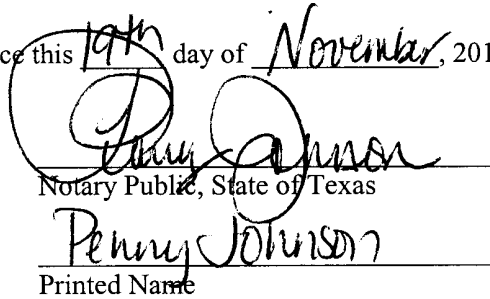 ce this 19th day of November, 201
Penny Johnson
Notary Public, State of Texas
Penny Johnson
Printed Name